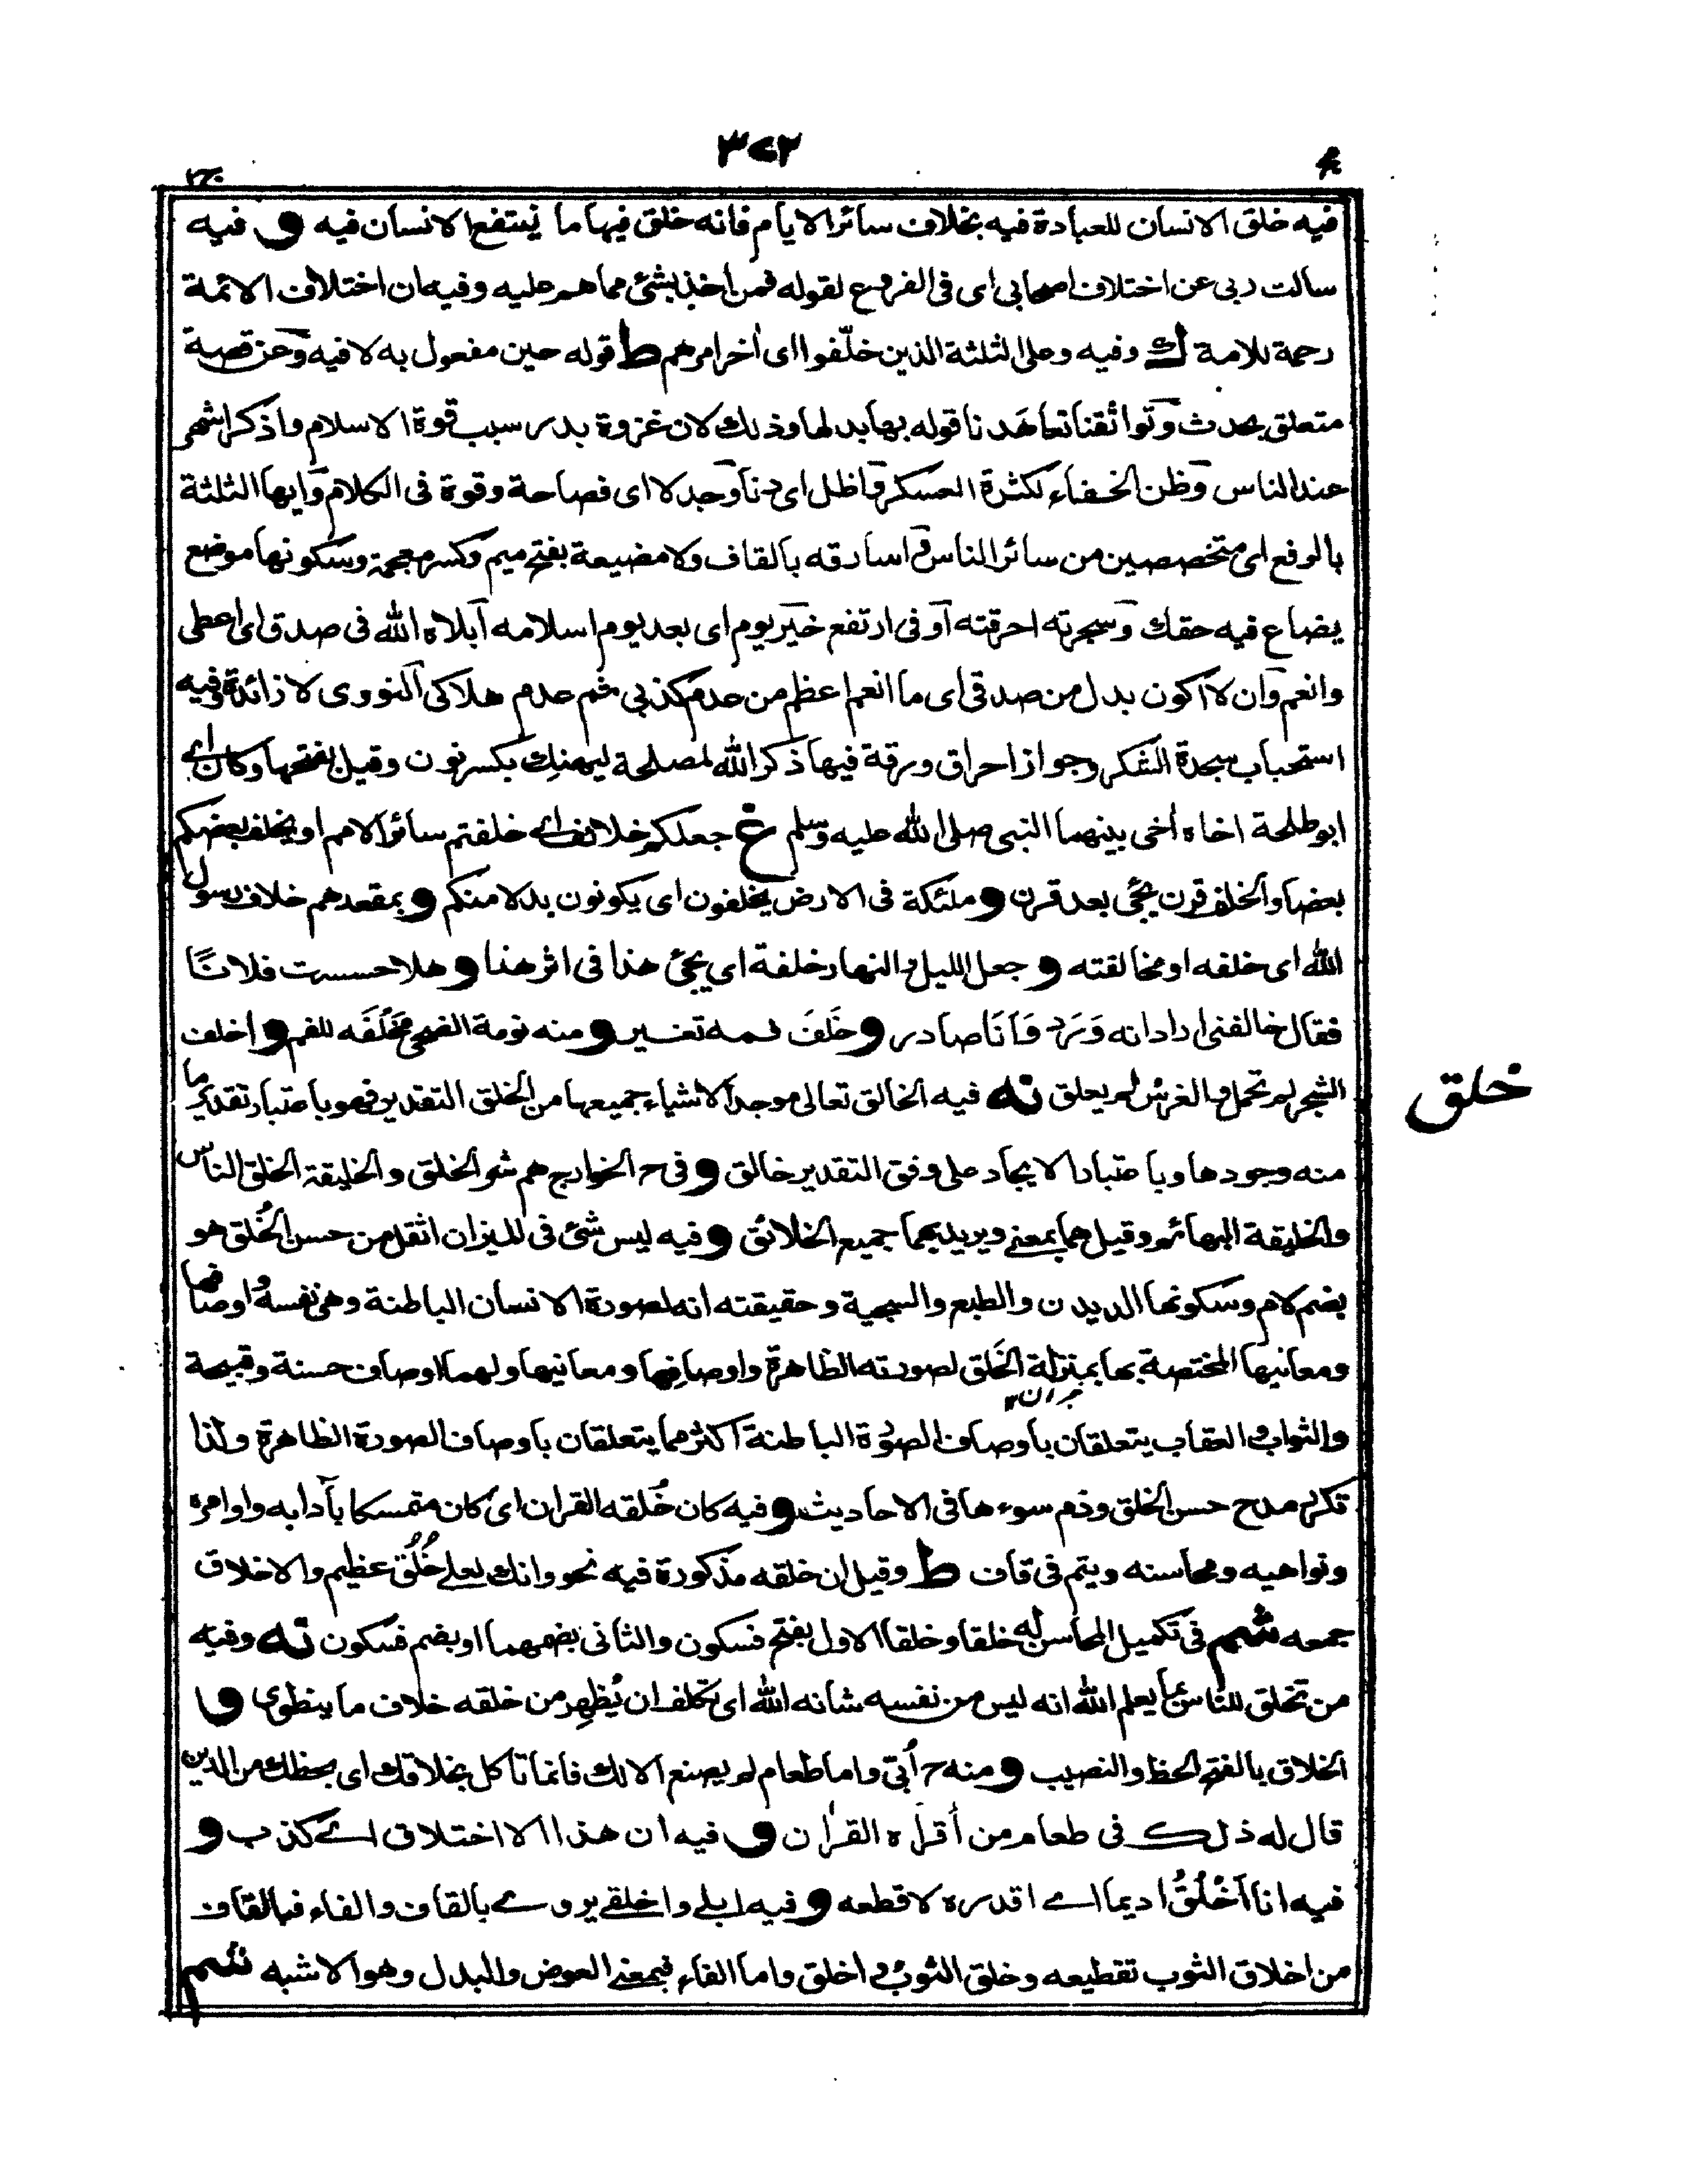 ٣٧٢
فيه خلق الانسان للعبادة فيه بخلاف سائر الايام فانه خلق فيها ما ينتفع الانسان فيه و فيه
سالت ربى عن اختلاف اصحابى اى فى الفروع لقوله فمن اخذ بشئ مما هم عليه وفيه ان اختلاف الائمة
رحمة للامة ك وفيه وعلى الثلثة الذين خلّفوا اى اخر امرهم ط قوله حين مفعول به لا فيه وعن قصة
متعلق بحدث وتواثقنا تعاهدنا قوله بها بدلها وذلك لان غزوة بدر سبب قوة الاسلام واذكر اشهر
عند الناس وظن الخفاء لكثرة العسكر واظل اى دنا وجدلا اى فصاحة وقوة فى الكلام وايها الثلثة
بالرفع اى متخصصين من سائر الناس واسارقه بالقاف ولا مضيعة بفتح ميم وكسر معجمة وسكونها موضع
يضاع فيه حقك وسجرته احرقته اوفى ارتفع خير يوم اى بعد يوم اسلامه ابلاه الله فى صدق اى اعطى
وانعم وان لا اكون بدل من صدقى اى ما انعم اعظم من عدم كذبى ثم عدم هلاكى النووى لا زائدة وفيه
استحباب سجدة الشكر وجواز احراق ورقة فيها ذكر الله لمصلحة ليهنك بكسر نون وقيل بفتحها وكان اے
ابو طلحة اخاه اخى بينهما النبى صلى الله عليه وسلم غ جعلكم خلائف اے خلفتم سائر الامم او يخلف بعضكم
بعضا والخلف قرن يجئ بعد قرن و ملئكة فى الارض يخلفون اى يكونون بدلا منكم و بمقعدهم خلاف رسول
الله اى خلفه او مخالفته و جعل الليل والنهار خلفة اى يجئ هذا فى اثر هذا و هلا حسست فلانًا
فقال خالفنى اراد انه وَرَد وَاَنَا صادر و خَلَفَ فمه تغير و منه نومة الضحى مَخْلَفَه للفم و اخلف
الشجر لم تحمل والغرس لم يعلق نه فيه الخالق تعالى موجد الاشياء جميعها من الخلق التقدير فهو باعتبار تقدير ما
منه وجودها وباعتبار الايجاد على وفق التقدير خالق و فى ح الخوارج هم شر الخلق والخليقة الخلق الناس
والخليقة البهائم وقيل هما بمعنے ويريد بهما جميع الخلائق و فيه ليس شئ فى الميزان اثقل من حسن الخُلق هو
بضم لام وسكونها الديدن والطبع والسجية وحقيقته انه لصورة الانسان الباطنة وهى نفسه واوصافها
ومعانيها المختصة بها بمنزلة الخَلق لصورته الظاهرة واوصافها ومعانيها ولهما اوصاف حسنة وقبيحة
والثواب والعقاب يتعلقان باوصاف الصورة الباطنة اكثر مما يتعلقان باوصاف الصورة الظاهرة ولذا
تكرر مدح حسن الخلق وذم سوءها فى الاحاديث و فيه كان خُلقه القران اى كان متمسكا بآدابه واوامره
ونواهيه ومحاسنه ويتم فى قاف ط وقيل ان خلقه مذكورة فيه نحو وانك لعلے خُلُق عظيم والاخلاق
جمعه شم فى تكميل المحاسن له خلقا وخلقا الاول بفتح فسكون والثانى بضمهما او بضم فسكون نه وفيه
من تخلق للناس بما يعلم الله انه ليس من نفسه شانه الله اى تكلف ان يُظهِر من خلقه خلاف ما ينطوى و
الخلاق بالفتح الحظ والنصيب و منه ح اُبىّ واما طعام لم يصنع الا لك فانما تاكل بخلاقك اى بحظك من الدين
قال له ذلك فى طعام من أقرأه القران و فيه ان هذا الا اختلاق اے كذب و
فيه انا اَخْلُقُ اديما اے اقدره لاقطعه و فيه ابلے واخلقے يروے بالقاف والفاء فبالقاف
من اخلاق الثوب تقطيعه وخلق الثوب واخلق واما الفاء فبمعنے العوض والبدل وهو الاشبه شم
خلق